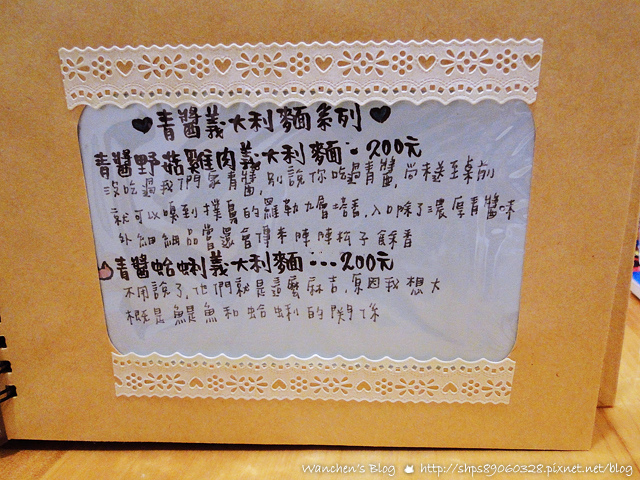 ♥青醬義大利麵系列♥
青醬野菇雞肉義大利麵-200元
沒吃過我們家青醬,別說你吃過青醬,尚未送至桌前
就可以嗅到撲鼻的羅勒九層塔香,入口除了濃厚青醬味
外細細品嘗還會傳來陣陣松子餘香
青醬蛤蜊義大利麵---200元
不用說了,他們就是這麼麻吉,原因我想大
概是鯷魚和蛤蜊的関係
Wanchen's Blog http://shps89060328.pixnet.net/blog